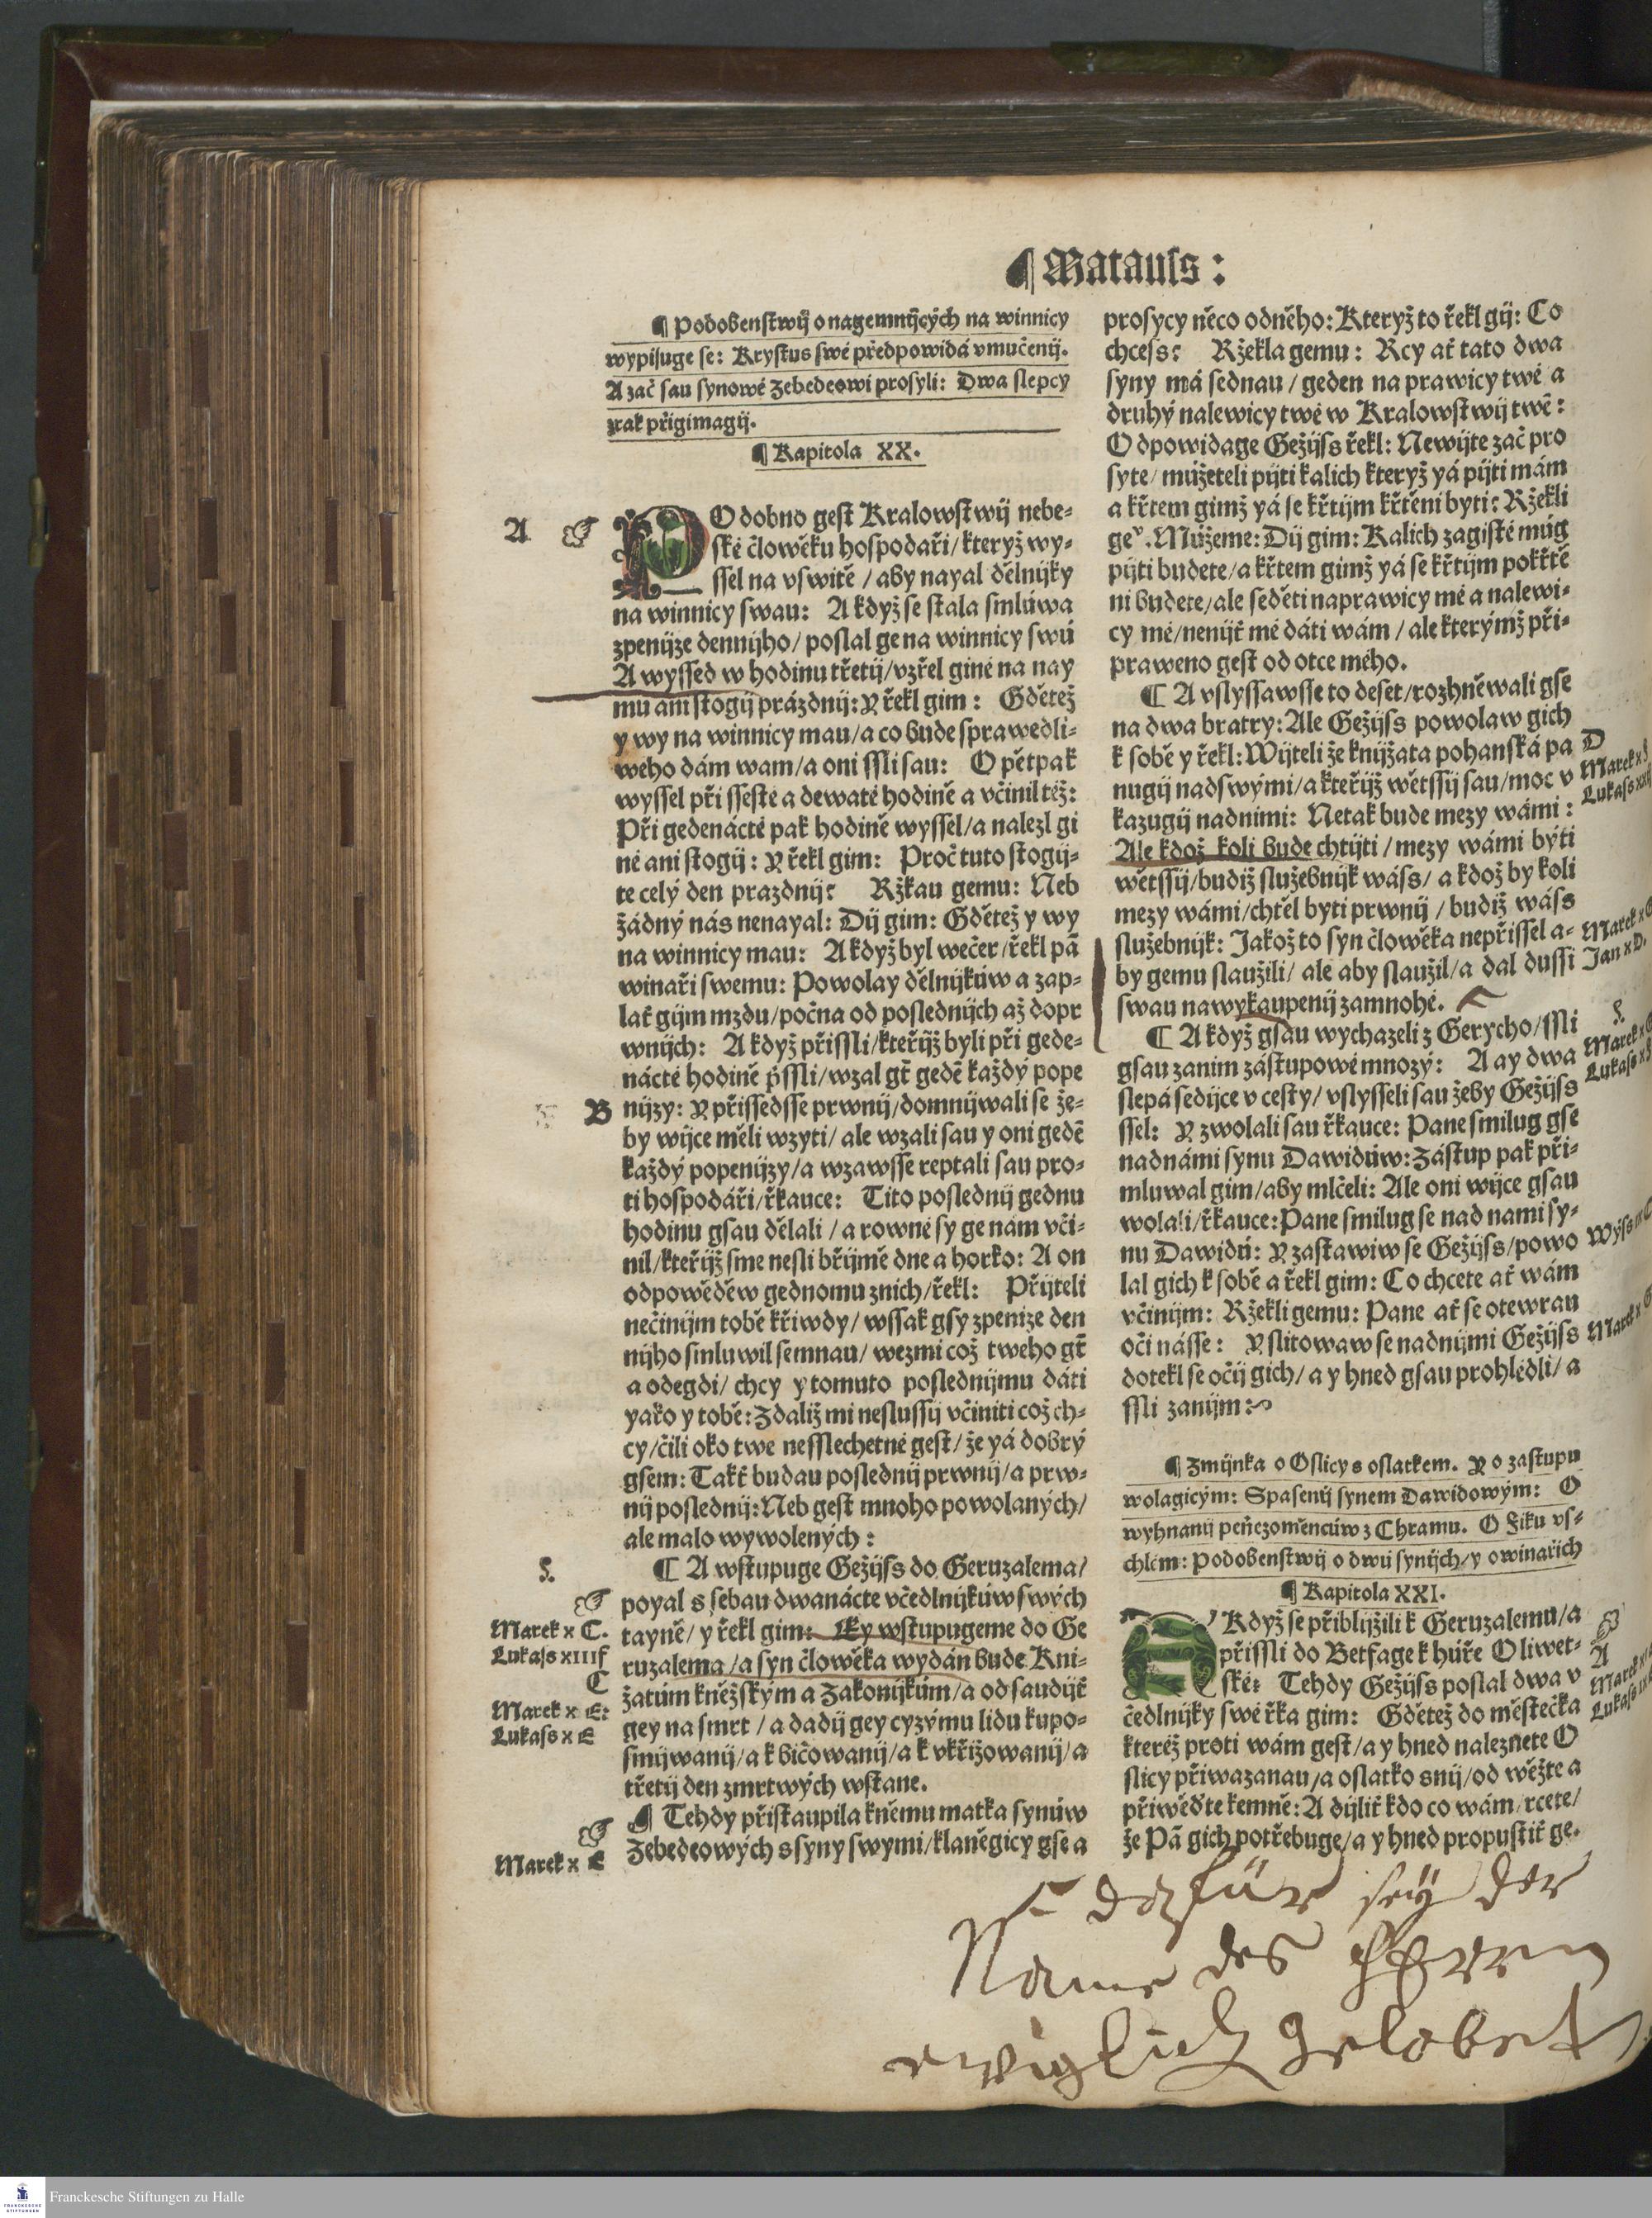 ¶ Matauss:
¶ Podobenstwij o nagemnijcých na winnicy
wypisuge se: Krystus swé předpowidá vmučenij.
A zač sau synowé Zebedeowi prosyli: Dwa slepcy
zrak přigimagij.
¶ Kapitola XX.
A
PO dobno gest Kralowstwij nebe-
ské člowěku hospodaři/kterýž wy-
ssel na vswitě / aby nayal dělnijky
na winnicy swau: A když se stala smlúwa
zpenijze dennijho/ poslal ge na winnicy swú
A wyssed w hodinu třetij/vzřel giné na nay
mu ani stogij prázdnij: Y řekl gim: Gdětež
y wy na winnicy mau/a co bude sprawedli-
weho dám wam/a oni ssli sau: O pět pak
wyssel při ssesté a dewaté hodině a včinil též:
Při gedenácté pak hodině wyssel/a nalezl gi
né ani stogij: Y řekl gim: Proč tuto stogij-
te celý den prazdnij? Ržkau gemu: Neb
žádný nás nenayal: Dij gim: Gdětež y wy
na winnicy mau: A když byl wečer/řekl pā
winaři swemu: Powolay dělnijkúw a zap-
lať gijm mzdu/počna od poslednijch až do pr
wnijch: A když přissli/kteřijž byli při gede-
nácté hodině přssli/wzal gt gedē každý pope
B
nijzy: Y přissedsse prwnij/domnijwali se že-
by wijce měli wzyti/ ale wzali sau y oni gedē
každý popenijzy/a wzawsse reptali sau pro-
ti hospodáři/řkauce: Tito poslednij gednu
hodinu gsau dělali / a rowné sy ge nám vči-
nil/kteřijž sme nesli břijmě dne a horko: A on
odpowěděw gednomu z nich/řekl: Přijteli
nečinijm tobě křiwdy/ wssak gsy z penize den
nijho smluwil semnau/ wezmi což tweho gt
a odegdi/ chcy y tomuto poslednijmu dáti
yako y tobě: Zdaliž mi neslussij včiniti což ch-
cy/čili oko twe nesslechetné gest/ že yá dobrý
gsem: Takť budau poslednij prwnij/a prw-
nij poslednij: Neb gest mnoho powolaných/
ale malo wywolených:
¶ A wstupuge Gežijss do Geruzalema/
poyal s sebau dwanácte včedlnijkúw swých
Marek x C.
tayně/ y řekl gim: Ey wstupugeme do Ge
Lukass xiiij
ruzalema /a syn člowěka wydán bude Kni-
C
žatúm kněžským a Zakonijkúm/a odsaudijť
Marek x E:
gey na smrt / a dadij gey cyzýmu lidu ku po-
Lukass x E
smijwanij/a k bičowanij/a k vkřižowanij/a
třetij den z mrtwých wstane.
¶ Tehdy přistaupila k němu matka synúw
Marek x E
Zebedeowých s syny swymi/klaněgicy gse a
prosycy něco od něho: Kterýž to řekl gij: Co
chcess? Ržekla gemu: Rcy ať tato dwa
syny má sednau / geden na prawicy twé a
druhý na lewicy twé w Kralowstwij twē:
O dpowidage Gežijss řekl: Newijte zač pro
syte/ múžeteli pijti kalich kterýž yá pijti mám
a křtem gimž yá se křtijm křtěni byti? Ržekli
geᵛ. Múžeme: Dij gim: Kalich zagisté múg
pijti budete/a křtem gimž yá se křtijm pokřtě
ni budete/ale seděti na prawicy mé a na lewi-
cy mé/nenijť mé dáti wám / ale kterýmž při-
praweno gest od otce mého.
¶ A vslyssawsse to deset/rozhněwali gse
na dwa bratry: Ale Gežijss powolaw gich
k sobě y řekl: Wijteli že knijžata pohanská pa
D
nugij nad swými/a kteřijž wětssij sau/moc v
kazugij nad nimi: Ne tak bude mezy wámi:
Ale kdož koli bude chtijti / mezy wámi býti
wětssij/budiž služebnijk wáss/ a kdož by koli
mezy wámi/chtěl byti prwnij / budiž wáss
služebnijk: Jakož to syn člowěka nepřissel a-
by gemu slaužili/ ale aby slaužil/a dal dussi
swau na wykaupenij za mnohé.
¶ A když gsau wychazeli z Gerycho/ssli
gsau za nim zástupowé mnozý: A ay dwa
slepá sedijce v cesty/ vslysseli sau žeby Gežijss
ssel: Y zwolali sau řkauce: Pane smilug gse
nad námi synu Dawidúw: Zástup pak při-
mluwal gim/aby mlčeli: Ale oni wijce gsau
wolali/řkauce: Pane smilug se nad nami sy-
nu Dawidú: Y zastawiw se Gežijss/powo
lal gich k sobě a řekl gim: Co chcete ať wám
včinijm: Ržekli gemu: Pane ať se otewrau
oči násse: Y slitowaw se nad nijmi Gežijss
dotekl se očij gich/ a y hned gsau prohlédli/ a
ssli za nijm:
¶ Zmijnka o Oslicy s oslatkem. Y o zastupu
wolagicým: Spasenij synem Dawidowým: O
wyhnanij peňezoměncúw z Chramu. O Fiku vs-
chlém: Podobenstwij o dwú synijch/y o winařich
¶ Kapitola XXI.
A Když se přibližili k Geruzalemu/a
přissli do Betfage k húře Oliwet-
A
ské: Tehdy Gežijss poslal dwa v
čedlnijky swé řka gim: Gdětež do městečka
kteréž proti wám gest/a y hned naleznete O
slicy přiwazanau/a oslatko s nij/od wěžte a
přiwěďte ke mně: A dijliť kdo co wám/rcete/
že Pā gich potřebuge/a y hned propustiť ge.
dafür sey der
Name des HErren
ewiglich gelobet
Franckesche Stiftungen zu Halle